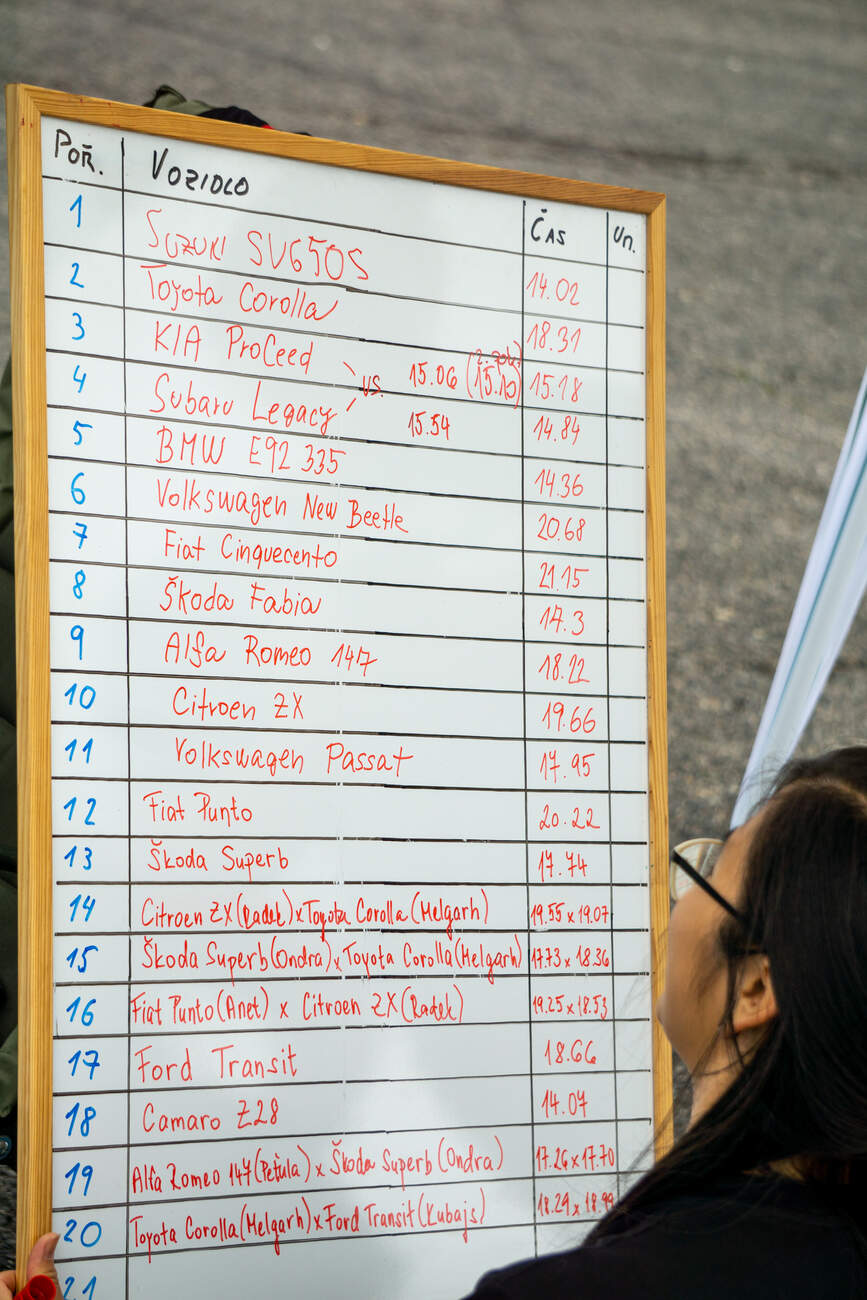 Poř. Vozidlo Čas Un.
1 Suzuki SV650S 14.02
2 Toyota Corolla 18.31
3 KIA ProCeed 15.06 (15.10) 15.18
vs.
4 Subaru Legacy 15.54 14.84
5 BMW E92 335 14.36
6 Volkswagen New Beetle 20.68
7 Fiat Cinquecento 21.15
8 Škoda Fabia 17.3
9 Alfa Romeo 147 18.22
10 Citroen ZX 19.66
11 Volkswagen Passat 17.95
12 Fiat Punto 20.22
13 Škoda Superb 17.74
14 Citroen ZX (Radek) x Toyota Corolla (Melgarh) 19.55 x 19.07
15 Škoda Superb (Ondra) x Toyota Corolla (Melgarh) 17.73 x 18.36
16 Fiat Punto (Anet) x Citroen ZX (Radek) 19.25 x 18.53
17 Ford Transit 18.66
18 Camaro Z28 14.07
19 Alfa Romeo 147 (Peťula) x Škoda Superb (Ondra) 17.26 x 17.70
20 Toyota Corolla (Melgarh) x Ford Transit (Kubajs) 18.29 x 18.99
21